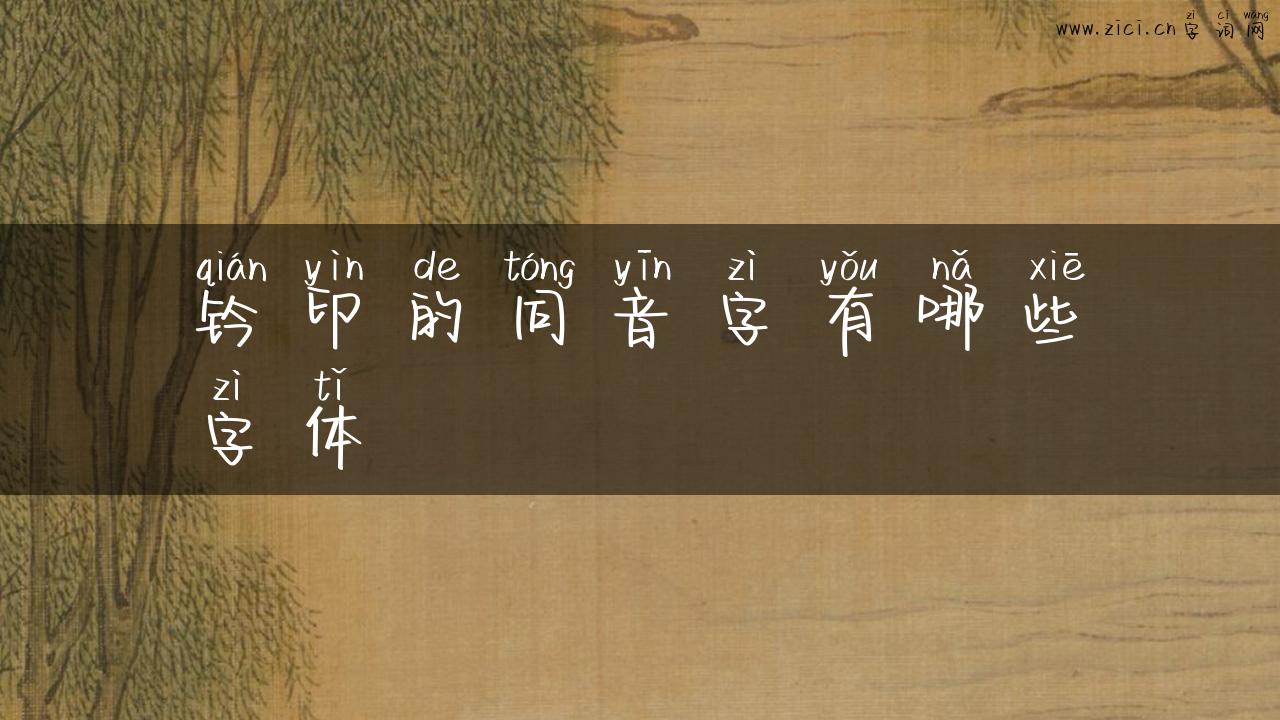 zì cí wǎng
www.zici.cn字词网
qián yìn de tóng yīn zì yǒu nǎ xiē
钤印的同音字有哪些
zì tǐ
字体